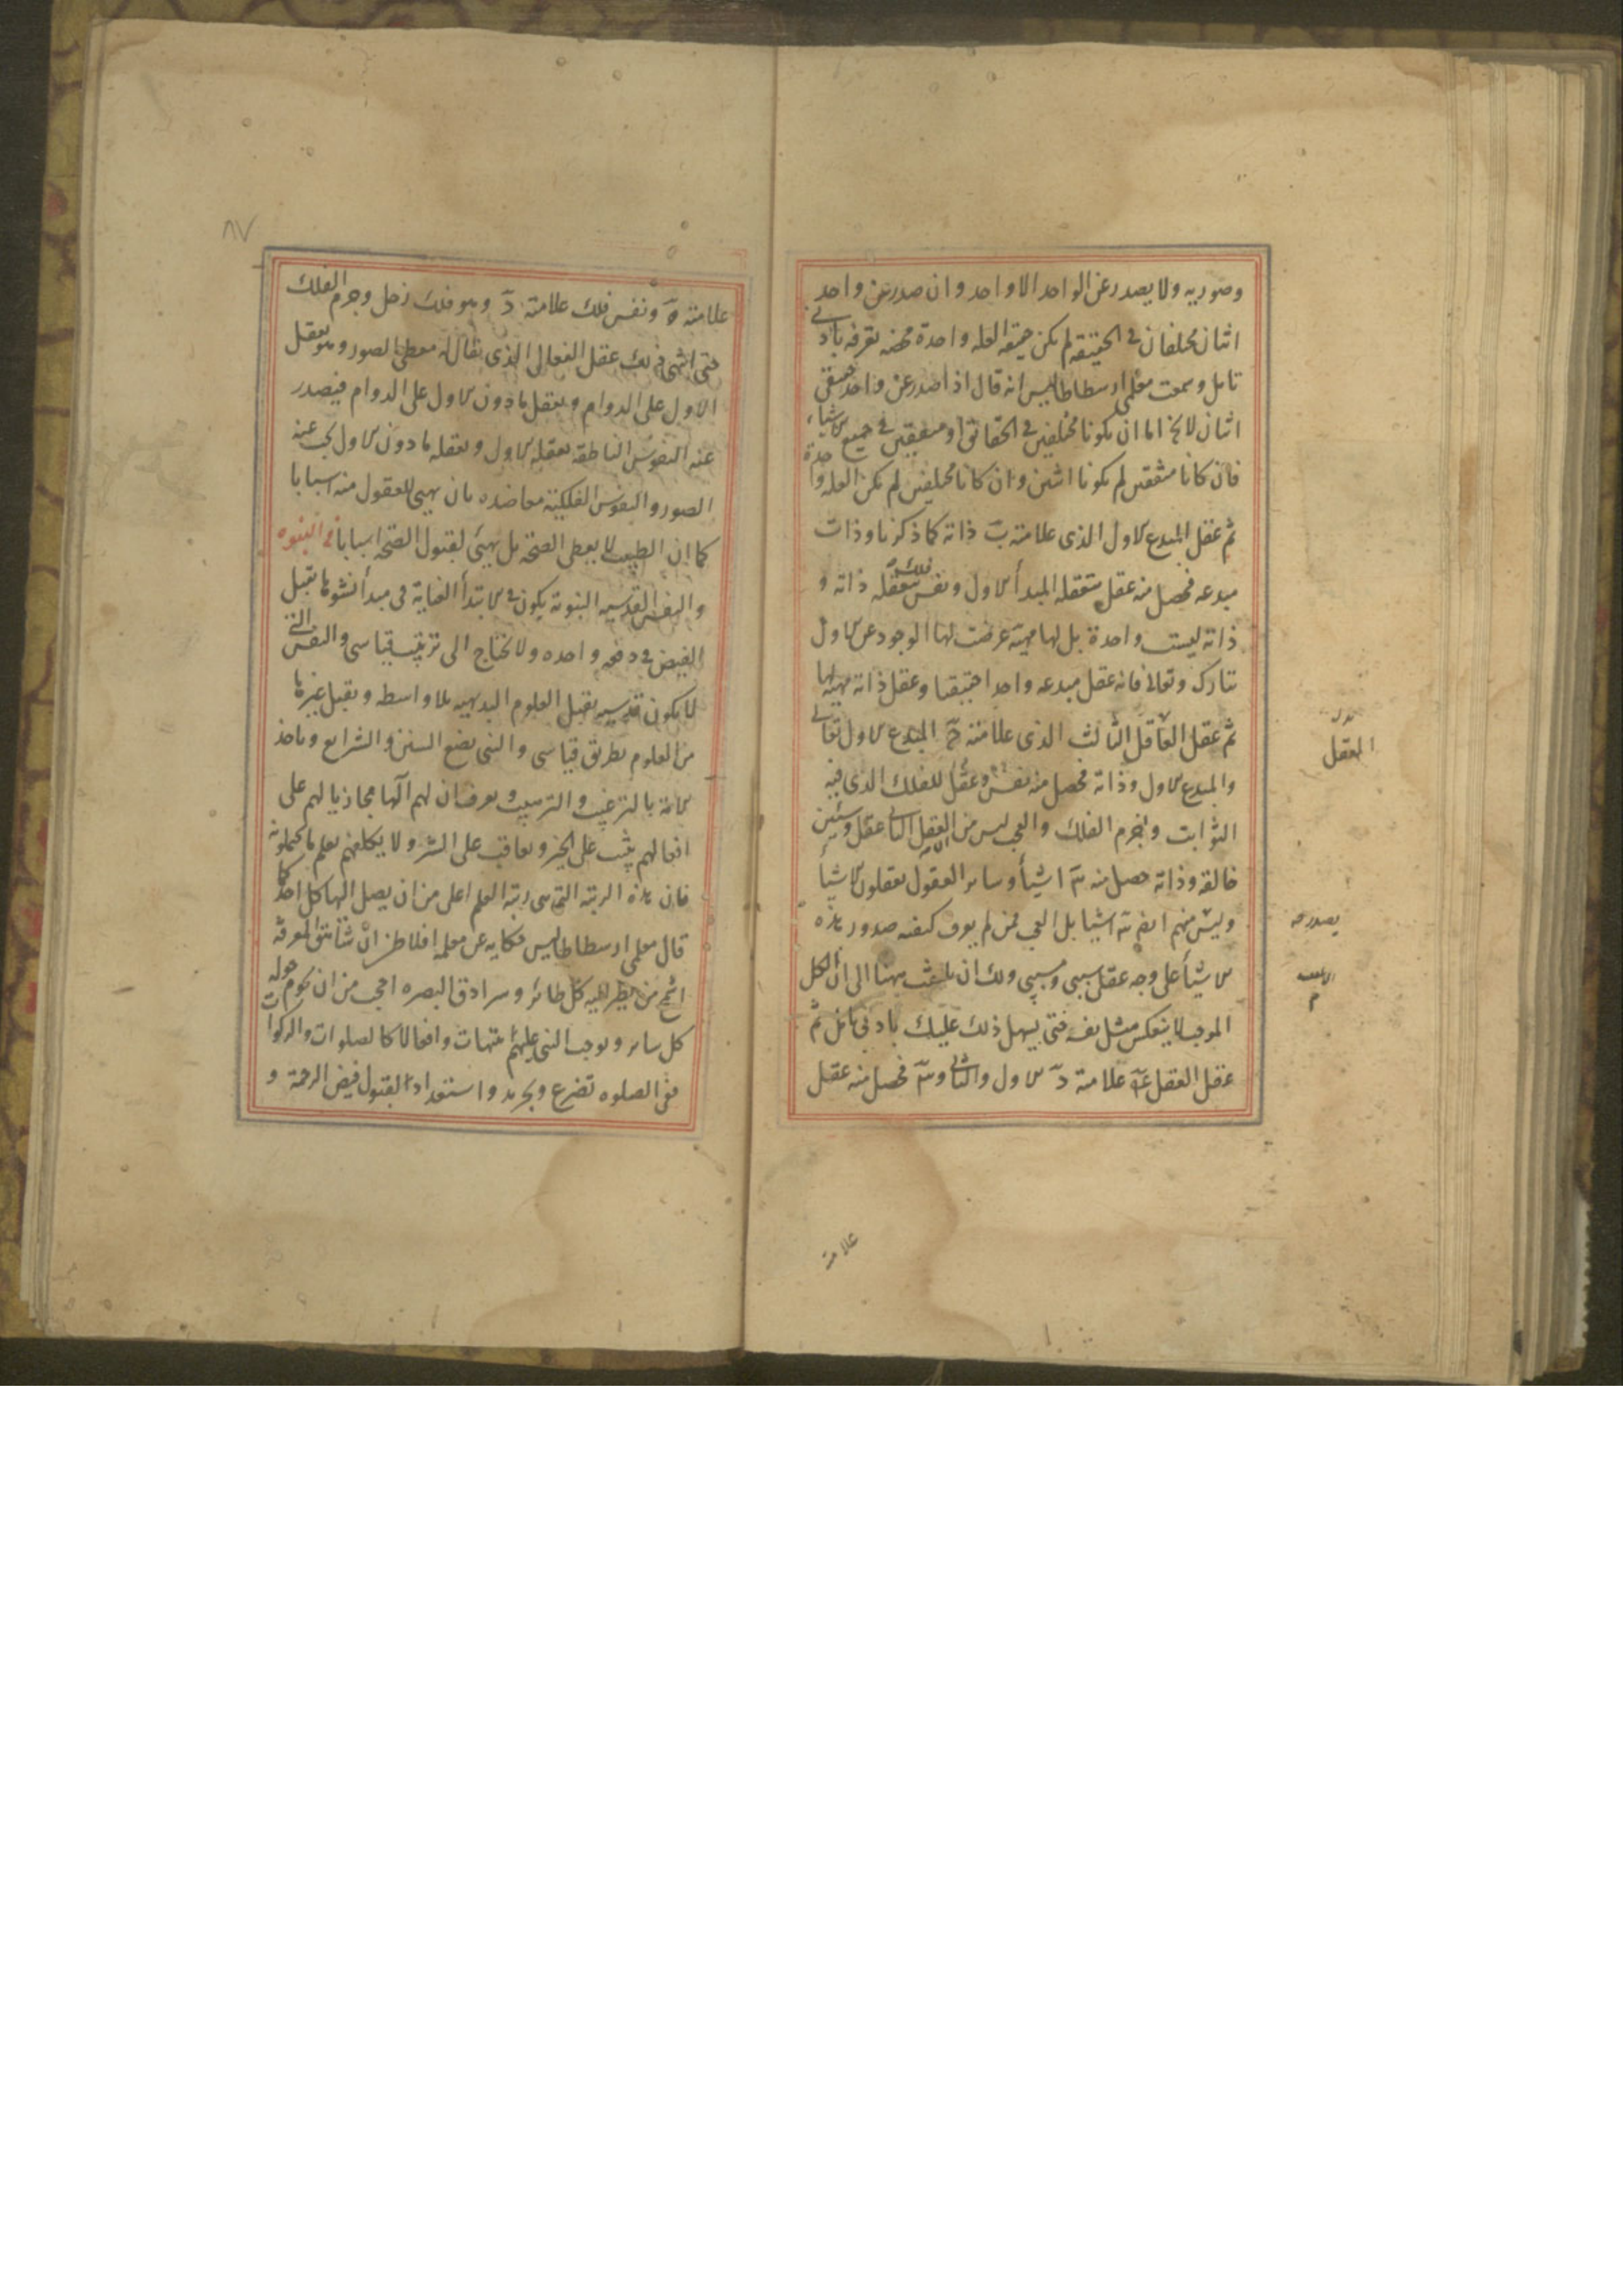 وصوريه ولا يصدر عن الواحد الا واحد وان صدر عن واحد
اثنان مختلفان فى الحقيقه لم يكن حقيقه العله واحدة محضه تعرفه بادنى
تامل وسمعت معلمى ارسطاطاليس انه قال اذا صدر عن واحد حقيقى
اثنان لا يخ اما ان يكونا مختلفين فى الحقائق او متفقين فى جميع الاشياء
فان كانا متفقين لم يكونا اثنين وان كانا مختلفين لم يكن العله واحدة
ثم عقل المبدع الاول الذى علامته ب ذاته كما ذكرنا وذات
مبدعه فحصل منه عقل بتعقله المبدأ الاول ونفس فلك بتعقله ذاته و
ذاته ليست واحدة بل لها مهية عرضت لها الوجود عن الاول
تبارك وتعالى فانه عقل مبدعه واحدا حقيقيا وعقل ذاته مهيتها
ثم عقل العاقل الثالث الذى علامته ج المبدع الاول تعالى
والمبدع الاول وذاته فحصل منه نفس وعقل للفلك الذى فيه
الثوابت وجرم الفلك والعجب ليس من العقل الثانى عقل وستين
خالقه وذاته حصل منه ستة اشيأ وساير العقول يعقلون الاشيأ
وليس منهم ايضا ستة اشيا بل العجب ممن لم يعرف كيفيه صدور هذه
الاشيأ على وجه عقل سببى ومسببى ولك ان تلتفت ههنا الى ان الكل
الموجب لا ينعكس مثل نفسه فتى يسهل ذلك عليك بادنى تامل ثم
عقل العقل علامته د الاول والثانى وستة فحصل منه عقل
المعقل
يصدر عنه
علامته
٨٧
علامته ه ونفس فلك علامته د وهو فلك زحل وجرم الفلك
حتى انتهى ذلك عقل الفعال الذى يقال له معطى الصور وهو يعقل
الاول على الدوام ويعقل ما دون الاول على الدوام فيصدر
عنه النفوس الناطقه بعقله الاول وبعقله ما دون الاول يجب عنه
الصور والنفوس الفلكية معاضده بان يهيئ للعقول منه اسبابا
كما ان الطبيب لا يعطى الصحة بل يهيئ لقبول الصحة اسبابا فى النبوه
والنفس القدسيه النبوية يكون فى الابتدأ الغاية فى مبدأ نشوها تقبل
الفيض فى دفعه واحده ولا تحتاج الى ترتيب قياسى والنفس التى
لا يكون قدسيه تقبل العلوم البديهيه بلا واسطه وتقبل غيرها
من العلوم بطريق قياسى والنبى يضع السنن والشرايع وياخذ
الامة بالترغيب والترهيب ويعرف ان لهم الها مجازيا لهم على
افعالهم يثيب على الخير ويعاقب على الشر ولا يكلفهم بعلم ما لا يحتملونه
فان هذه الرتبه التى هى رتبة العلم اعلى من ان يصل اليها كل احد كما
قال معلمى ارسطاطاليس حكايه عن معلمه افلاطن ان شاهق المعرفة
اشمخ من ان يطير اليه كل طائر وسرادق البصيره احجب من ان يحوم حوله
كل ساير ويوجب النبى عليهم تنبيهات وافعالا كالصلوات والزكوات
ففى الصلوه تضرع وتجريد واستعداد لقبول فيض الرحمة و